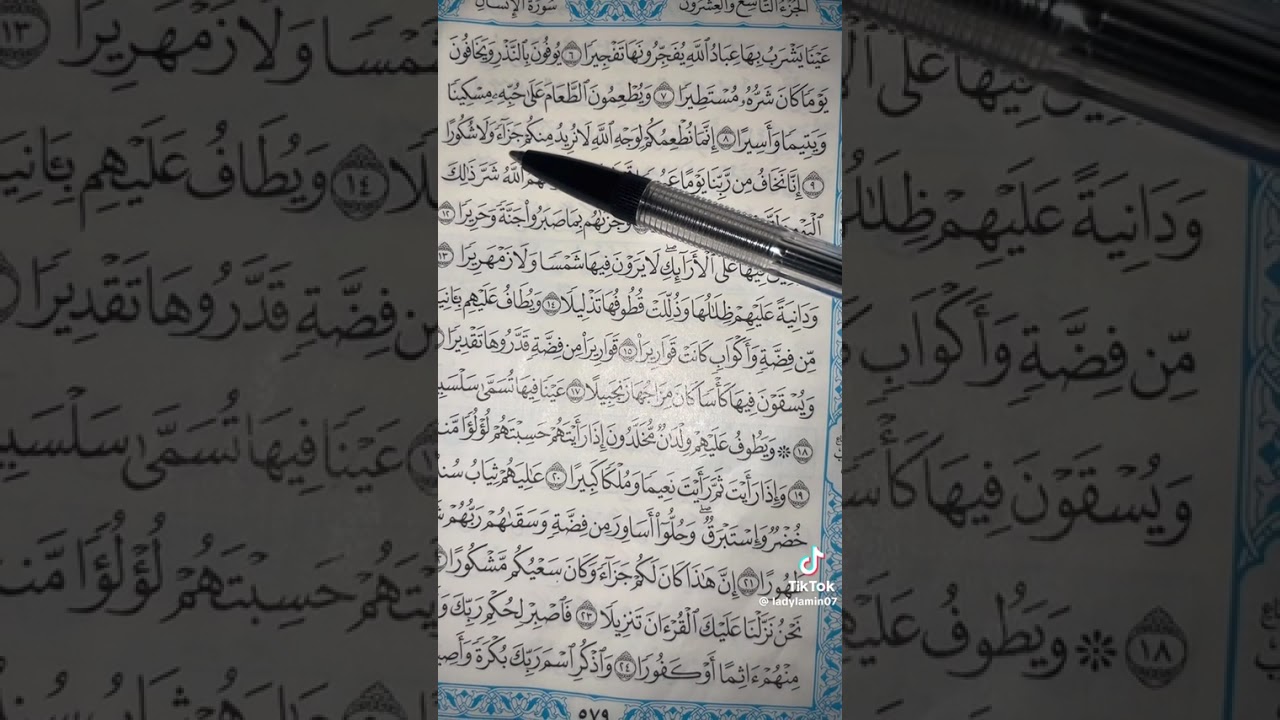 الجزء التاسع والعشرون سورة الإنسان
عَيْنًا يَشْرَبُ بِهَا عِبَادُ ٱللَّهِ يُفَجِّرُونَهَا تَفْجِيرًا ٦ يُوفُونَ بِٱلنَّذْرِ وَيَخَافُونَ
يَوْمًا كَانَ شَرُّهُۥ مُسْتَطِيرًا ٧ وَيُطْعِمُونَ ٱلطَّعَامَ عَلَىٰ حُبِّهِۦ مِسْكِينًا
وَيَتِيمًا وَأَسِيرًا ٨ إِنَّمَا نُطْعِمُكُمْ لِوَجْهِ ٱللَّهِ لَا نُرِيدُ مِنكُمْ جَزَآءً وَلَا شُكُورًا
٩ إِنَّا نَخَافُ مِن رَّبِّنَا يَوْمًا ٱللَّهُ شَرَّ ذَٰلِكَ
وَجَزَىٰهُم بِمَا صَبَرُوا۟ جَنَّةً وَحَرِيرًا ١٢
فِيهَا عَلَى ٱلْأَرَآئِكِ ۖ لَا يَرَوْنَ فِيهَا شَمْسًا وَلَا زَمْهَرِيرًا ١٣
وَدَانِيَةً عَلَيْهِمْ ظِلَٰلُهَا وَذُلِّلَتْ قُطُوفُهَا تَذْلِيلًا ١٤ وَيُطَافُ عَلَيْهِم بِـَٔانِيَ
مِّن فِضَّةٍ وَأَكْوَابٍ كَانَتْ قَوَارِيرَا۠ ١٥ قَوَارِيرَا۟ مِن فِضَّةٍ قَدَّرُوهَا تَقْدِيرًا
وَيُسْقَوْنَ فِيهَا كَأْسًا كَانَ مِزَاجُهَا زَنجَبِيلًا ١٧ عَيْنًا فِيهَا تُسَمَّىٰ سَلْسَبِي
١٨ ۞ وَيَطُوفُ عَلَيْهِمْ وِلْدَٰنٌ مُّخَلَّدُونَ إِذَا رَأَيْتَهُمْ حَسِبْتَهُمْ لُؤْلُؤًا مَّن
١٩ وَإِذَا رَأَيْتَ ثَمَّ رَأَيْتَ نَعِيمًا وَمُلْكًا كَبِيرًا ٢٠ عَٰلِيَهُمْ ثِيَابُ سُند
خُضْرٌ وَإِسْتَبْرَقٌ ۖ وَحُلُّوٓا۟ أَسَاوِرَ مِن فِضَّةٍ وَسَقَىٰهُمْ رَبُّهُمْ
طَهُورًا ٢١ إِنَّ هَٰذَا كَانَ لَكُمْ جَزَآءً وَكَانَ سَعْيُكُم مَّشْكُورًا
نَحْنُ نَزَّلْنَا عَلَيْكَ ٱلْقُرْءَانَ تَنزِيلًا ٢٣ فَٱصْبِرْ لِحُكْمِ رَبِّكَ وَ
مِنْهُمْ ءَاثِمًا أَوْ كَفُورًا ٢٤ وَٱذْكُرِ ٱسْمَ رَبِّكَ بُكْرَةً وَأَصِي
٥٧٩
TikTok
@ ladylamin07